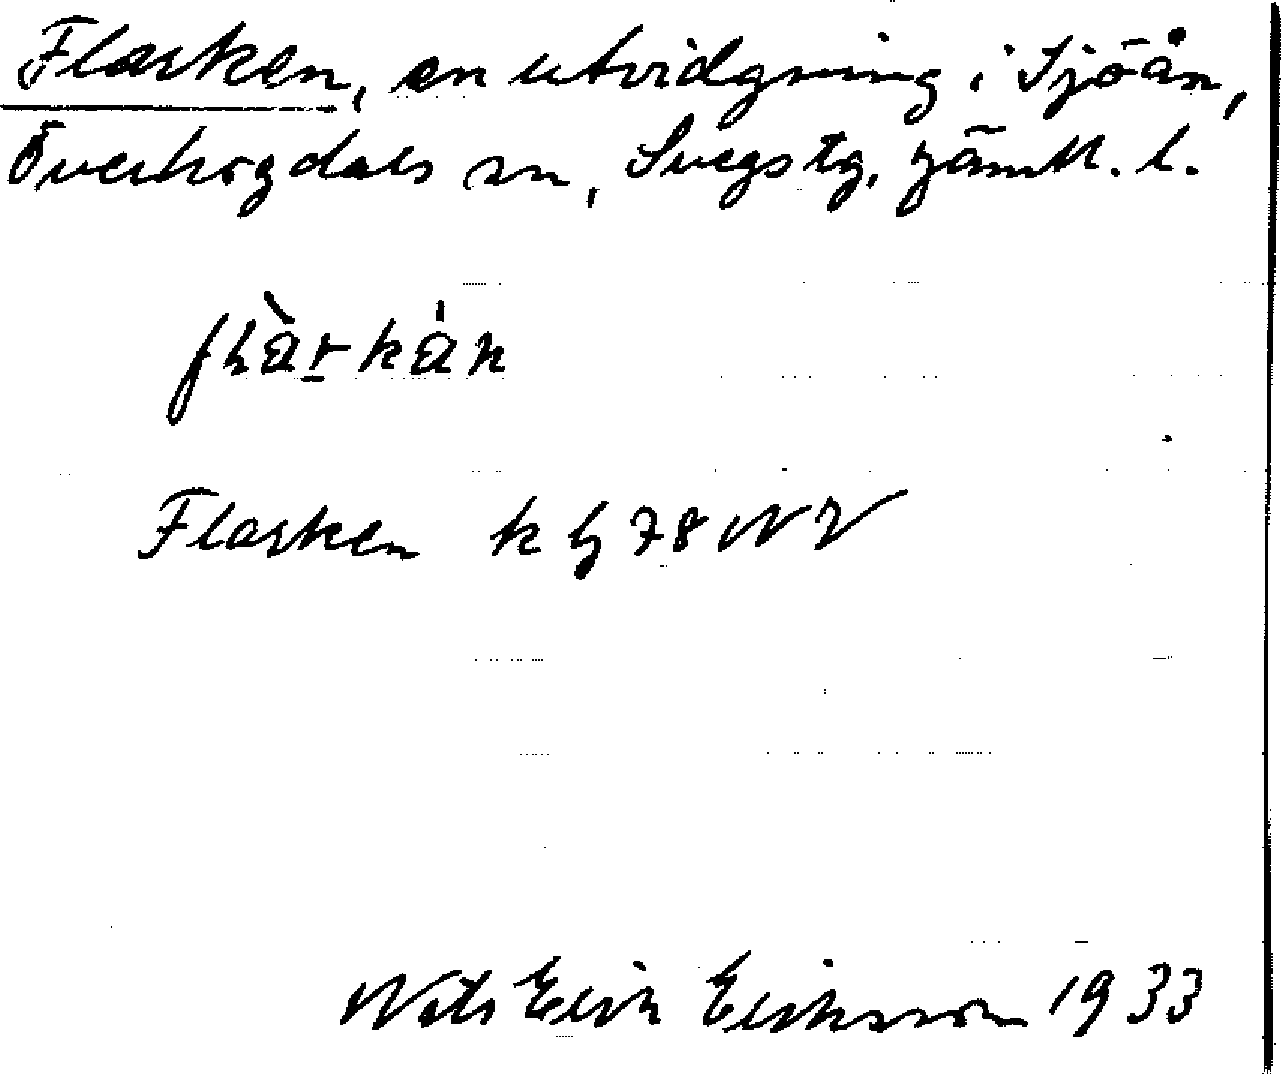 Flarken, en utvidgning i Sjöån,
Överhogdals sn, Svegs tg, Jämtl. l.
Flarken kbl 78 NV
Nils Erik Eriksson 1933